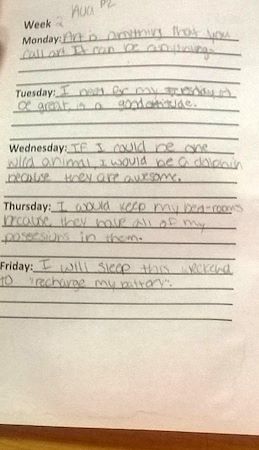 P2
Week 2
Monday: Art is anything that you
call art It can be anything.
Tuesday: I need for my
be great, is a good attitude.
Wednesday: If I could be one
wild animal, I would be a dolphin
because they are awesome.
Thursday: I would keep my bed-rooms
because they have all of my
possesions in them.
Friday: I will sleep this weekend
to "recharge my battery".